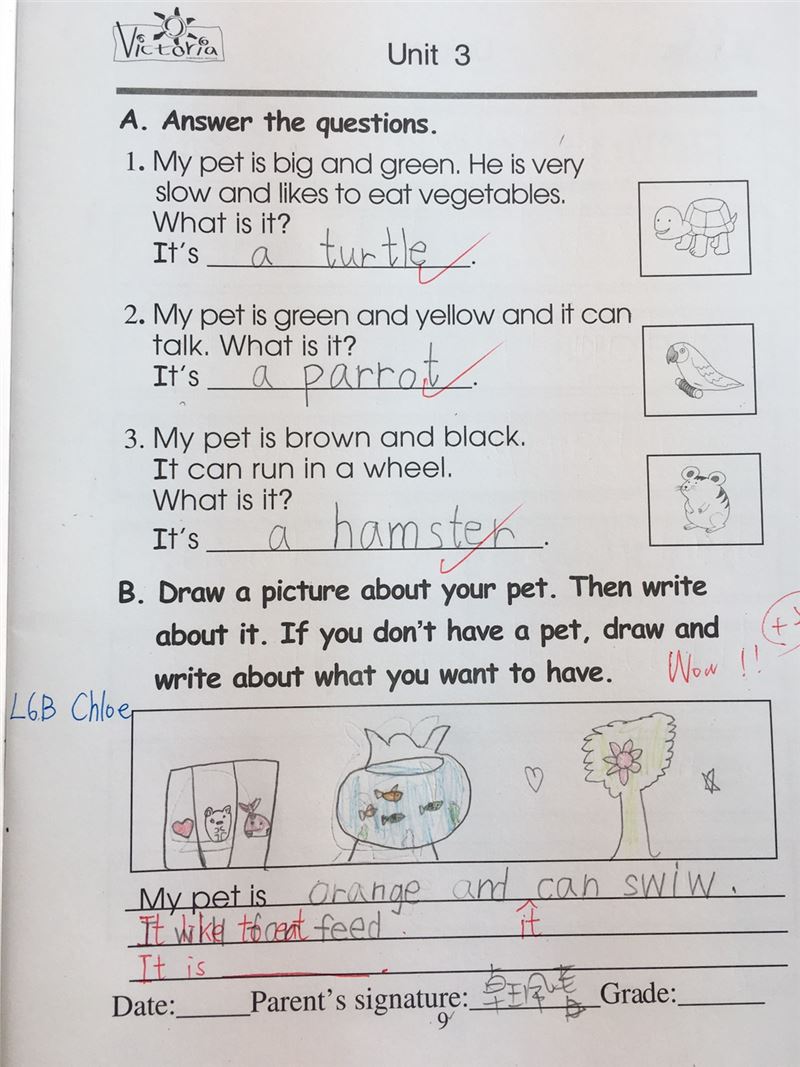 Victoria
Unit 3
A. Answer the questions.
1. My pet is big and green. He is very
slow and likes to eat vegetables.
What is it?
It's a turtle.
2. My pet is green and yellow and it can
talk. What is it?
It's a parrot.
3. My pet is brown and black.
It can run in a wheel.
What is it?
It's a hamster.
B. Draw a picture about your pet. Then write
about it. If you don't have a pet, draw and
write about what you want to have.
Wow!!
L6B Chloe
My pet is orange and can swiw.
It like to eat feed. it
It is ______.
Date:_____Parent's signature:______Grade:______
9